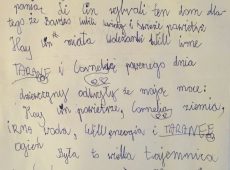 ponia, Ii Ćin, wybrali ten dom dla
tego że bardzo lubili wodę i świeże powietrze
Hay Lin miała koleżanki Will Irmę
TARANE i Cornelię pewnego dnia
dziewczyny odkryły że mają moce:
Hay Lin powietrze, Cornelia ziemia,
iRMA woda, Will energia i TARANEE
Ogień
Była to wielka tajemnica